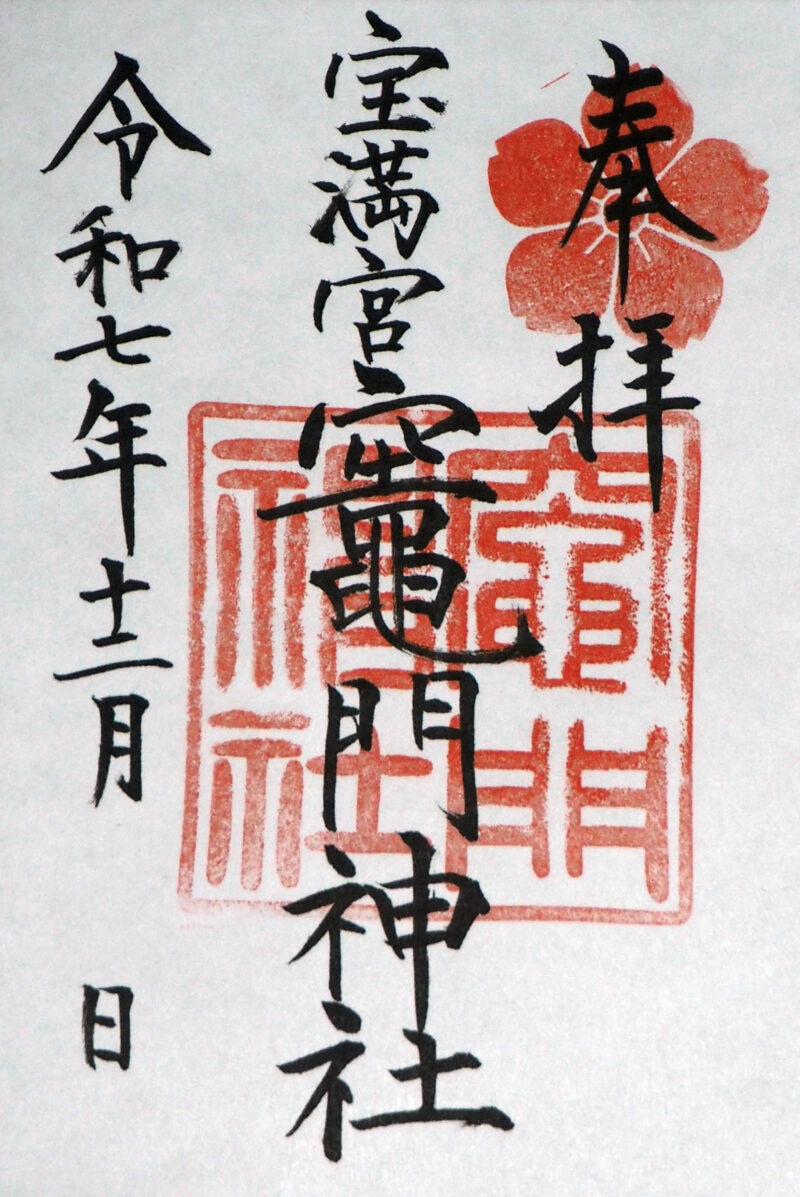 奉拝
宝満宮竈門神社
竈門神社
令和七年十二月 日